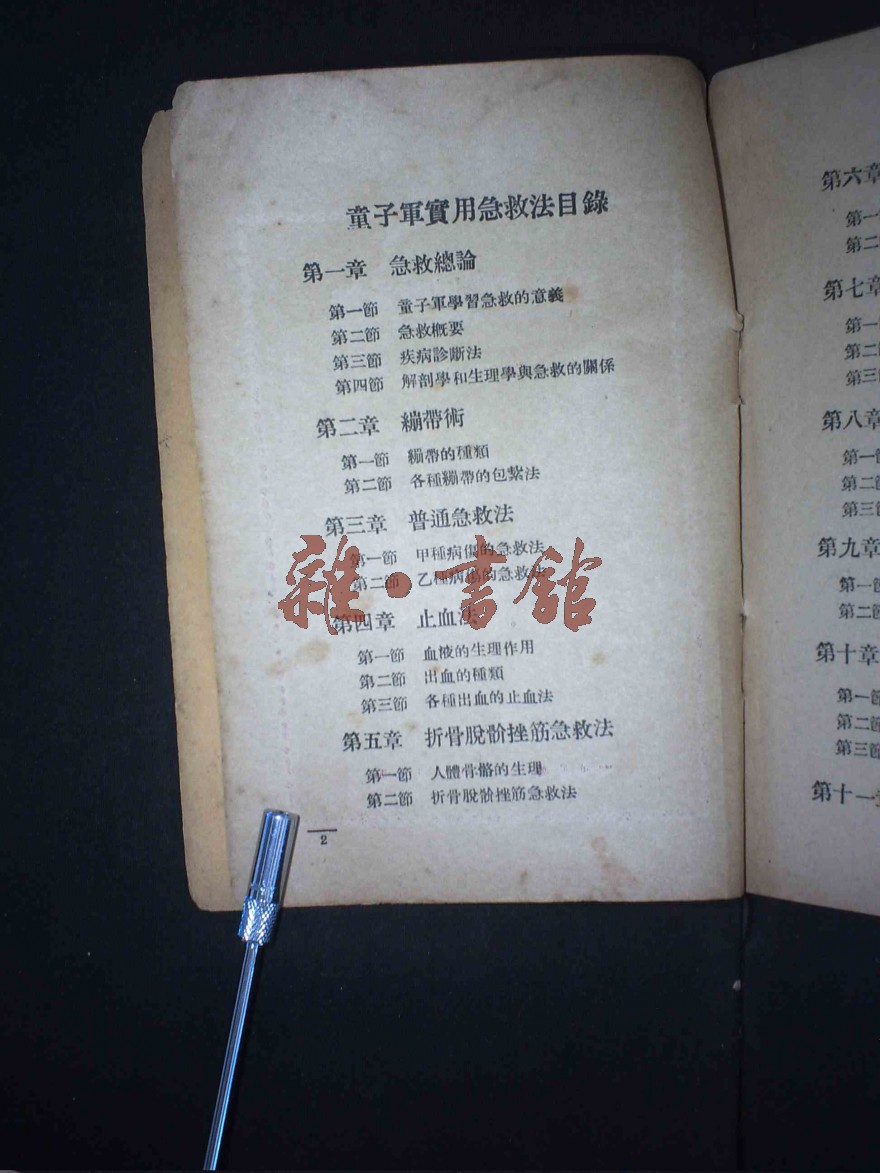 童子軍實用急救法目錄
第一章 急救總論
第一節 童子軍學習急救的意義
第二節 急救概要
第三節 疾病診斷法
第四節 解剖學和生理學與急救的關係
第二章 繃帶術
第一節 繃帶的種類
第二節 各種繃帶的包紮法
第三章 普通急救法
第一節 甲種病傷的急救法
第二節 乙種病傷的急救法
第四章 止血法
第一節 血液的生理作用
第二節 出血的種類
第三節 各種出血的止血法
第五章 折骨脫骱挫筋急救法
第一節 人體骨骼的生理
第二節 折骨脫骱挫筋急救法
2
雜·書館
第六章
第一
第二
第七章
第一
第二
第三
第八章
第一節
第二節
第三節
第九章
第一節
第二節
第十章
第一節
第二節
第三節
第十一